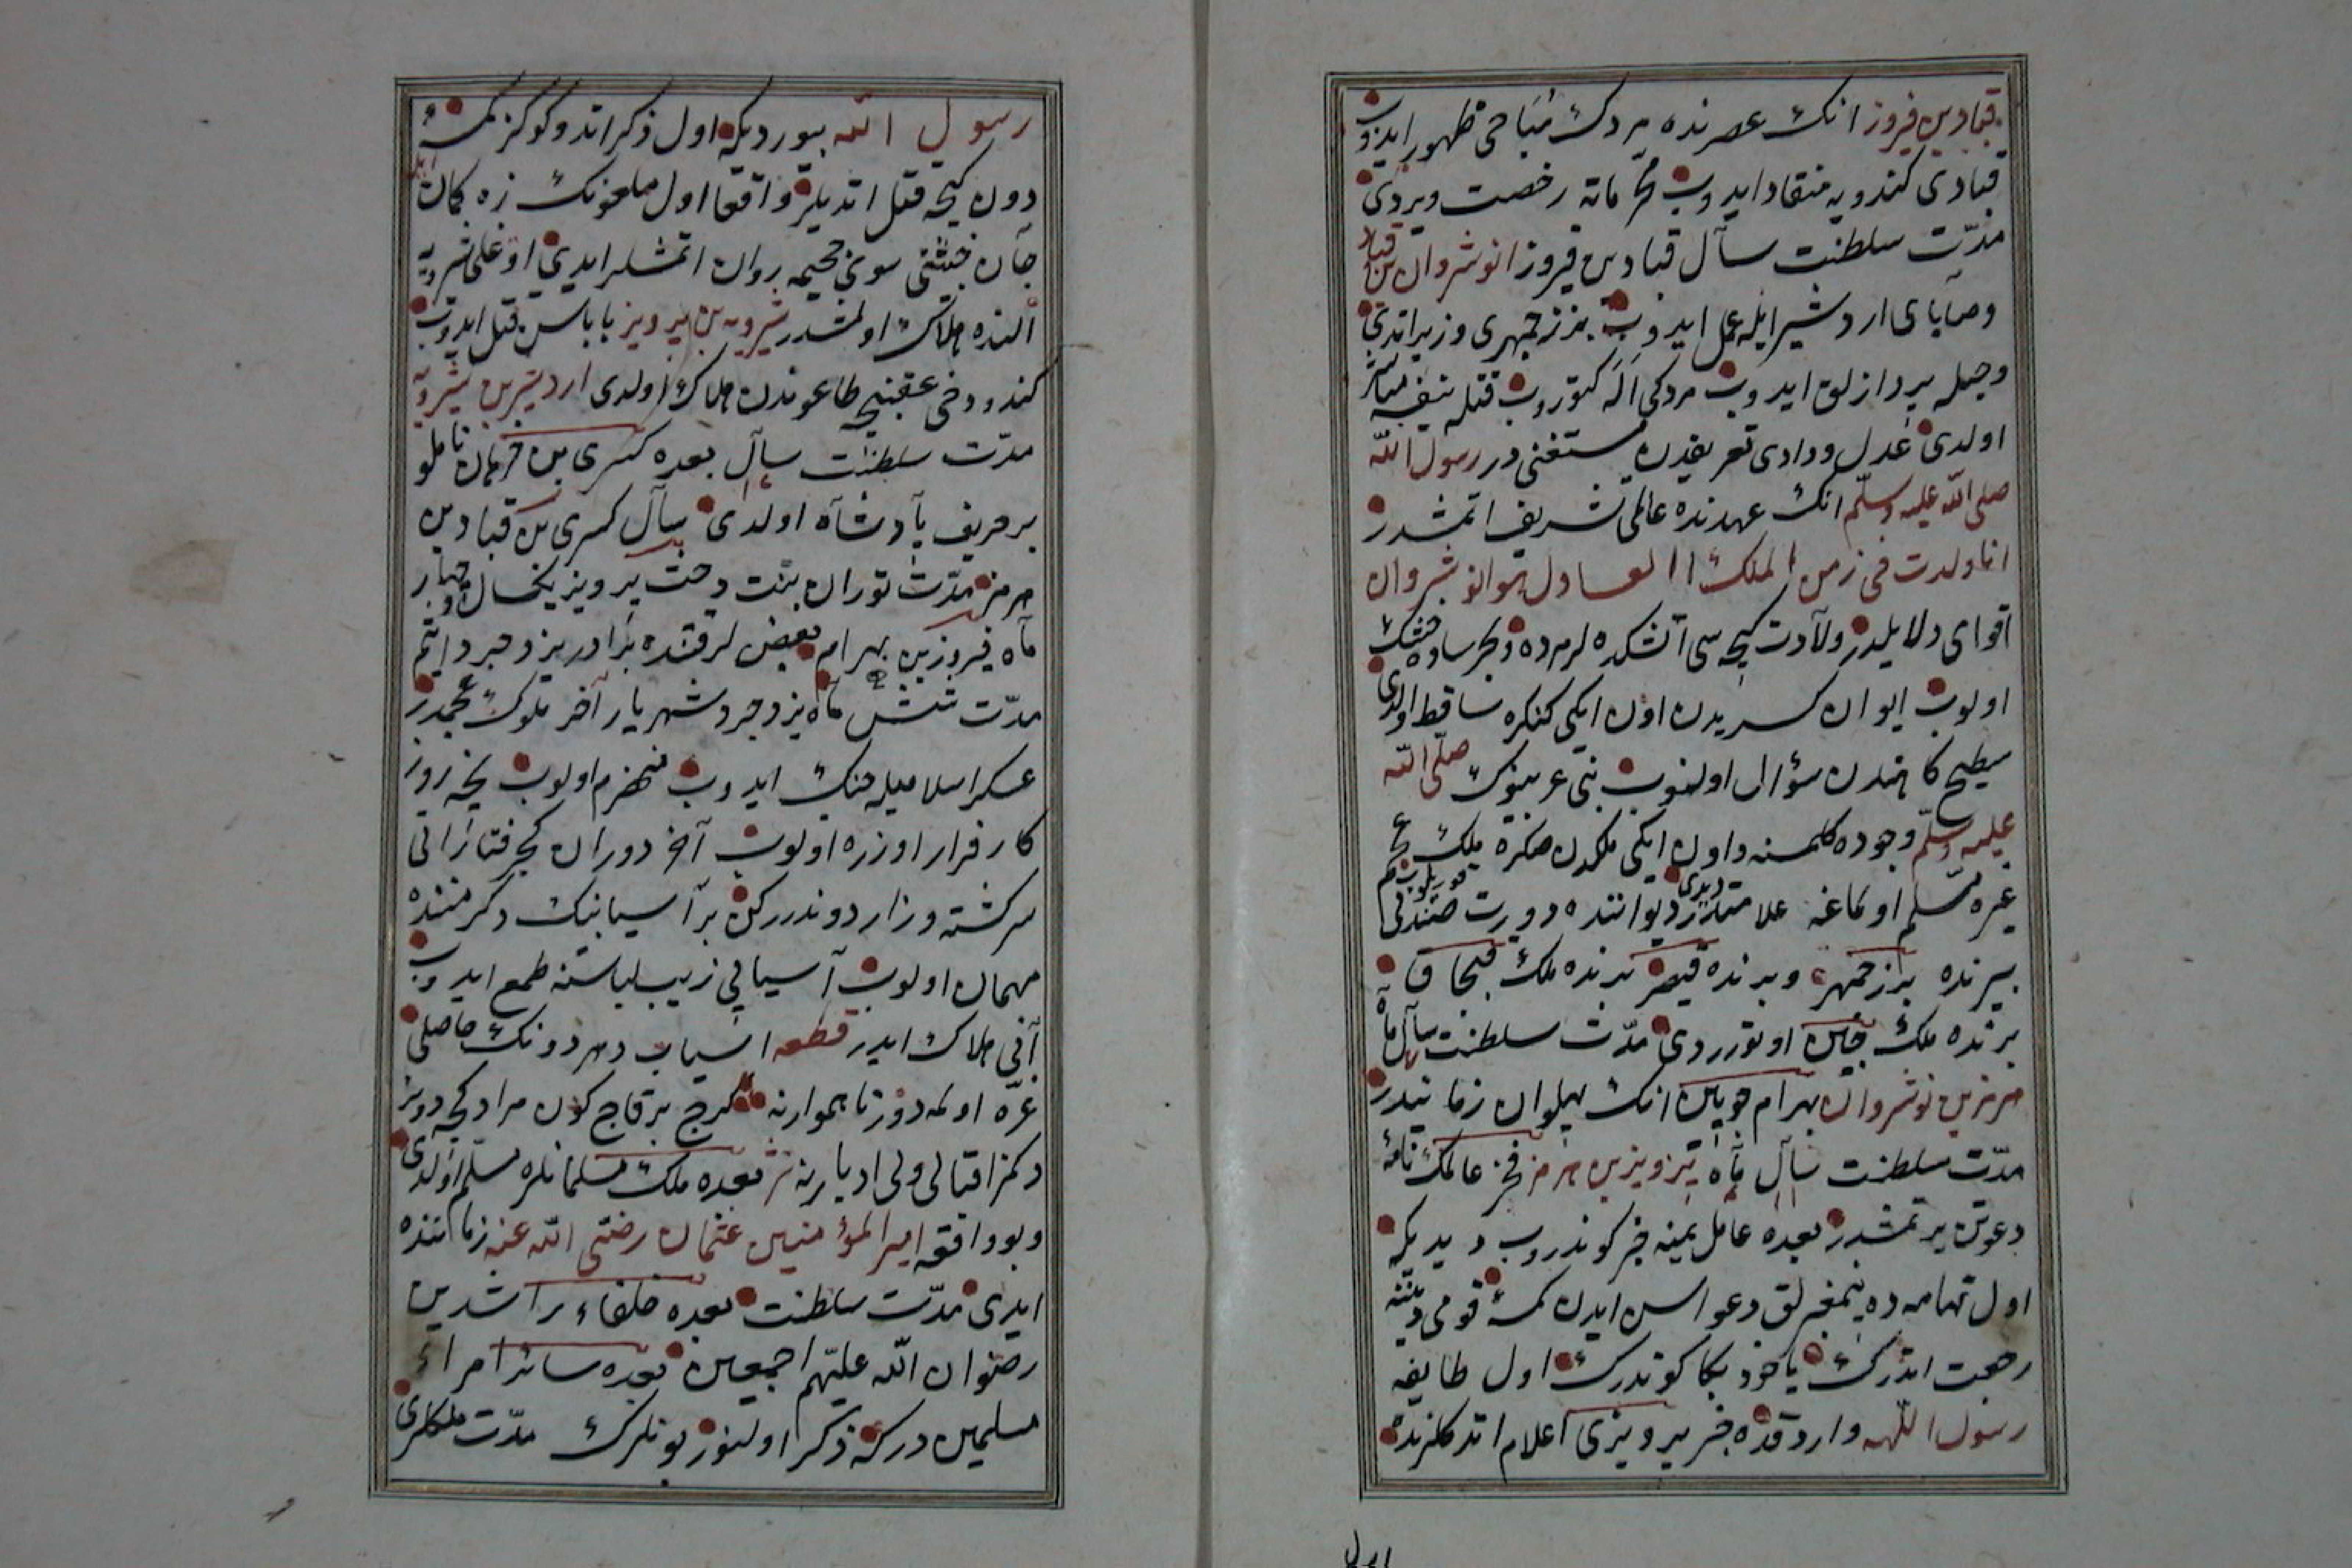 قباد بن فيروز انك عصرنده مردك مباحى ظهور ايدوب
قبادى كندويه منقاد ايدوب محرماته رخصت ويردى
مدّت سلطنت سال قباد بن فيروز انوشروان بن قباد
وصاياى اردشير ايله عمل ايدوب بزرجمهرى وزير اتدى
وحيله پردازلق ايدوب مردكى اله كتوروب قتله بنفسه مباشر
اولدى عدل ودادى تعريفدن مستغنى در رسول الله
صلى الله عليه وسلّم انك عهدنده عالمى تشريف اتمشدر
انا ولدت فى زمن الملك العادل هو انوشروان
اقواى دلايلدر ولادت كيجه سى آتشكده لرمرده وبحر ساوه خشك
اولوب ايوان كسريدن اون ايكى كنكره ساقط اولدى
سطيح كاهندن سؤال اولنوب نبى عربينوك صلّى الله
عليه وسلّم وجوده كلمسنه واون ايكى ملكدن صكره ملك عجم
غيره مسلّم اولماغه علامتدر ديدى ديواننده دورت صندلى قوريلوب
بيرنده بزرجمهر وبرنده قيصر برنده ملك قبچاق
برنده ملك چين اوتوردى مدّت سلطنت سال ماه
هرمز بن نوشروان بهرام چوبين انك پهلوان زمانيدر
مدّت سلطنت سال ماه پرويز بن هرمز فخر عالمك نامهٔ
دعوتن يرتمشدر بعده عامل يمينه خبر كوندروب ديديكه
اول تهامه ده پيغمبرلق دعواسن ايدن كمسه قومى دينه
رجعت اتدرك ياخود بكا كوندرك اول طايفه
رسول اللهه واردقده خبر پرويزى اعلام اتدكلرنده
رسول الله بيورديكه اول ذكر اتدوكوكز كمسه
دون كيجه قتل اتديلر واقعا اول ملعونك زه كمان ايله
جان خبيثنى سوى جحيمه روان اتمشلر ايدى اوغلى شرويه
النده هلاك اولمشدر شيرويه بن پرويز باباسن قتل ايدوب
كندو دخى عقبنجه طاعوندن هلاك اولدى اردشير بن شيرويه
مدّت سلطنت سال بعده كسرى بن خرهان ناملو
بر حريف پادشاه اولدى سال كسرى بن قباد بن
هرمز مدّت توران بنت دخت پرويز يكسال وچهار
ماه فيروز بن بهرام بعضيلر قتنده برادر يزدجرد ايتم
مدّت شش ماه يزدجرد شهريار آخر ملوك عجمدر
عسكر اسلاميله جنك ايدوب منهزم اولوب نيجه روز
كار فرار اوزره اولوب آخر دوران كجرفتار انى
سركشته وزار دوندرركن بر آسيابنك دكرمننده
مهمان اولوب آسيابى زيب لباسنه طمع ايدوب
آنى هلاك ايدر قطعه آسياب دهر دونك حاصلى
غرّه اولمه دور ناهموارنه كرج بر قاچ كون مرادكجه دونر
دكمز اقبالى ولى ادبارينه نثر بعده ملك مسلمانلره مسلّم اولدى
وبو واقعه امير المؤمنين عثمان رضى الله عنه زماننده
ايدى مدّت سلطنت بعده خلفاء راشدين
رضوان الله عليهم اجمعين بعده سائر امراء
مسلمين دركه ذكر اولنور بونلرك مدّت ملكلرى